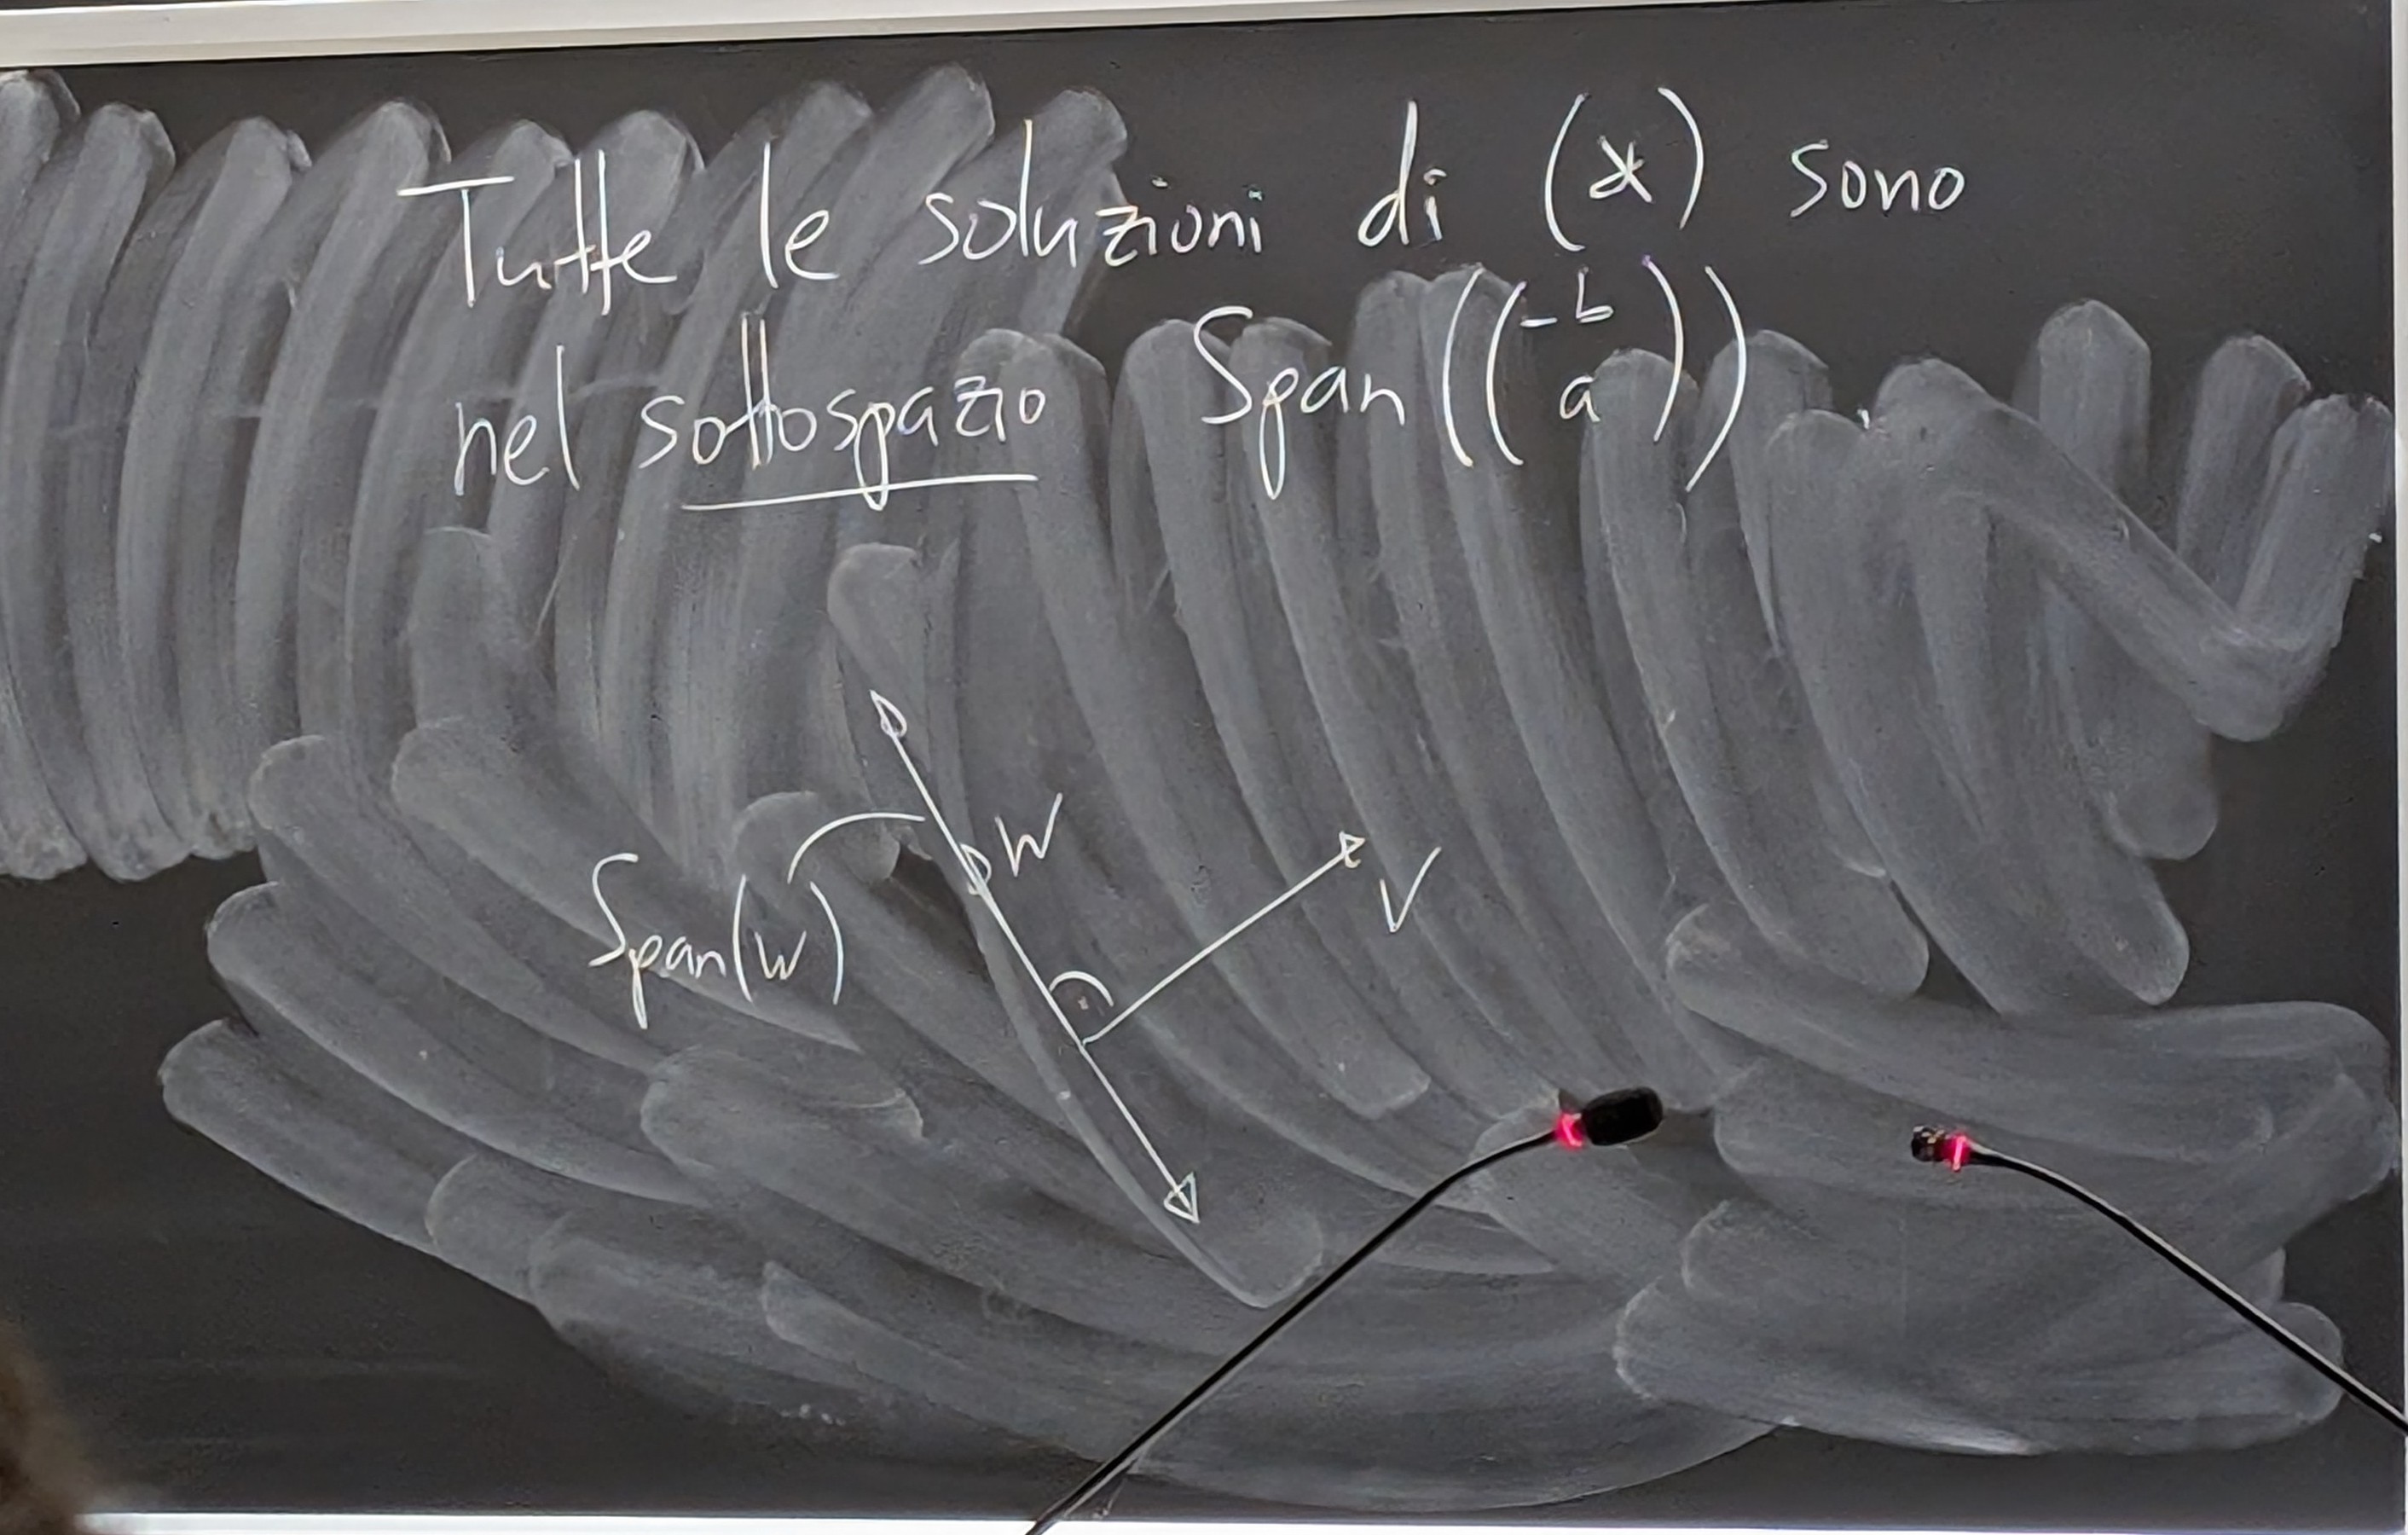 Tutte le soluzioni di (*) sono
nel sottospazio Span((-b a))
W
V
Span(W)